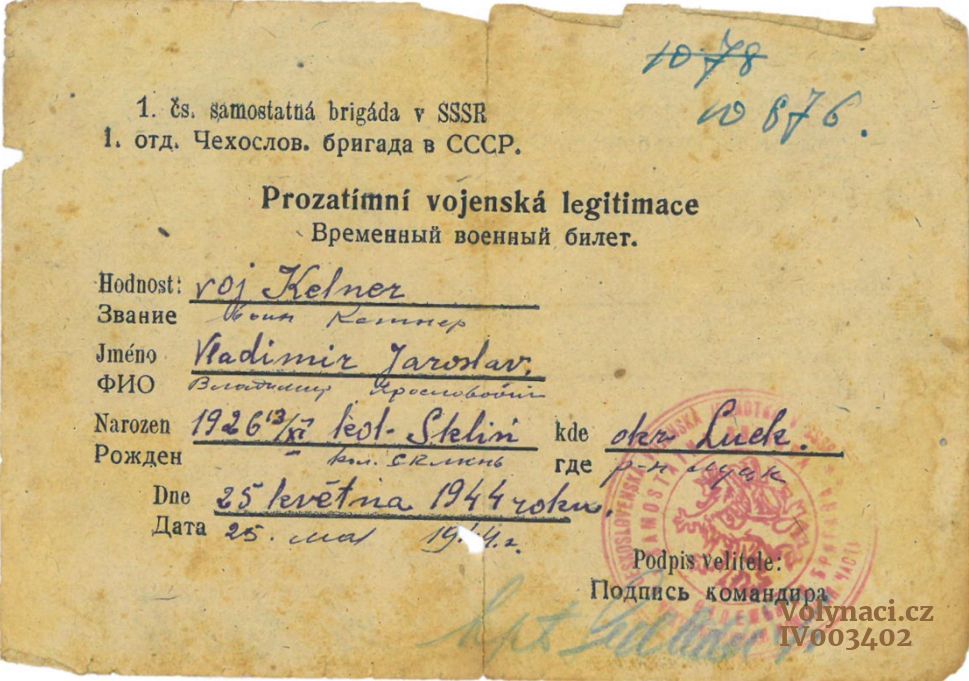 10 78
10 876.
1. čs. samostatná brigáda v SSSR
1. отд. Чехослов. бригада в СССР.
Prozatímní vojenská legitimace
Временный военный билет.
Hodnost: voj Kelner
Звание Воин Келнер
Jméno Vladimir Jaroslav.
ФИО Владимир
Narozen 1926 13/XI kol. Skliń kde okr Luck.
Рожден кол. Склинь где р-н Луцк
Dne 25 května 1944 roku.
Дата 25. мая 1944 г.
Podpis velitele:
Подпись командира
kpt
Volynaci.cz
IV003402